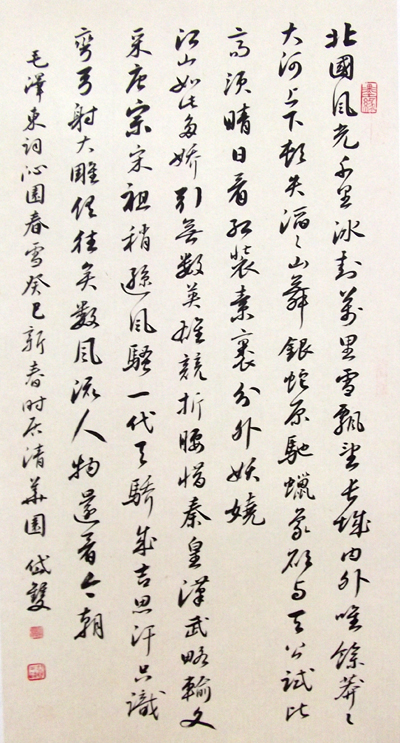 北國風光千里冰封萬里雪飄望長城内外唯餘莽々
大河上下頓失滔々山舞銀蛇原馳蠟象欲与天公試比
高須晴日看紅裝素裹分外妖嬈
江山如此多嬌引無數英雄競折腰惜秦皇漢武略輸文
采唐宗宋祖稍遜風騷一代天驕成吉思汗只識
彎弓射大雕俱往矣數風流人物還看今朝
毛澤東詞沁園春雪癸巳新春时居清華園